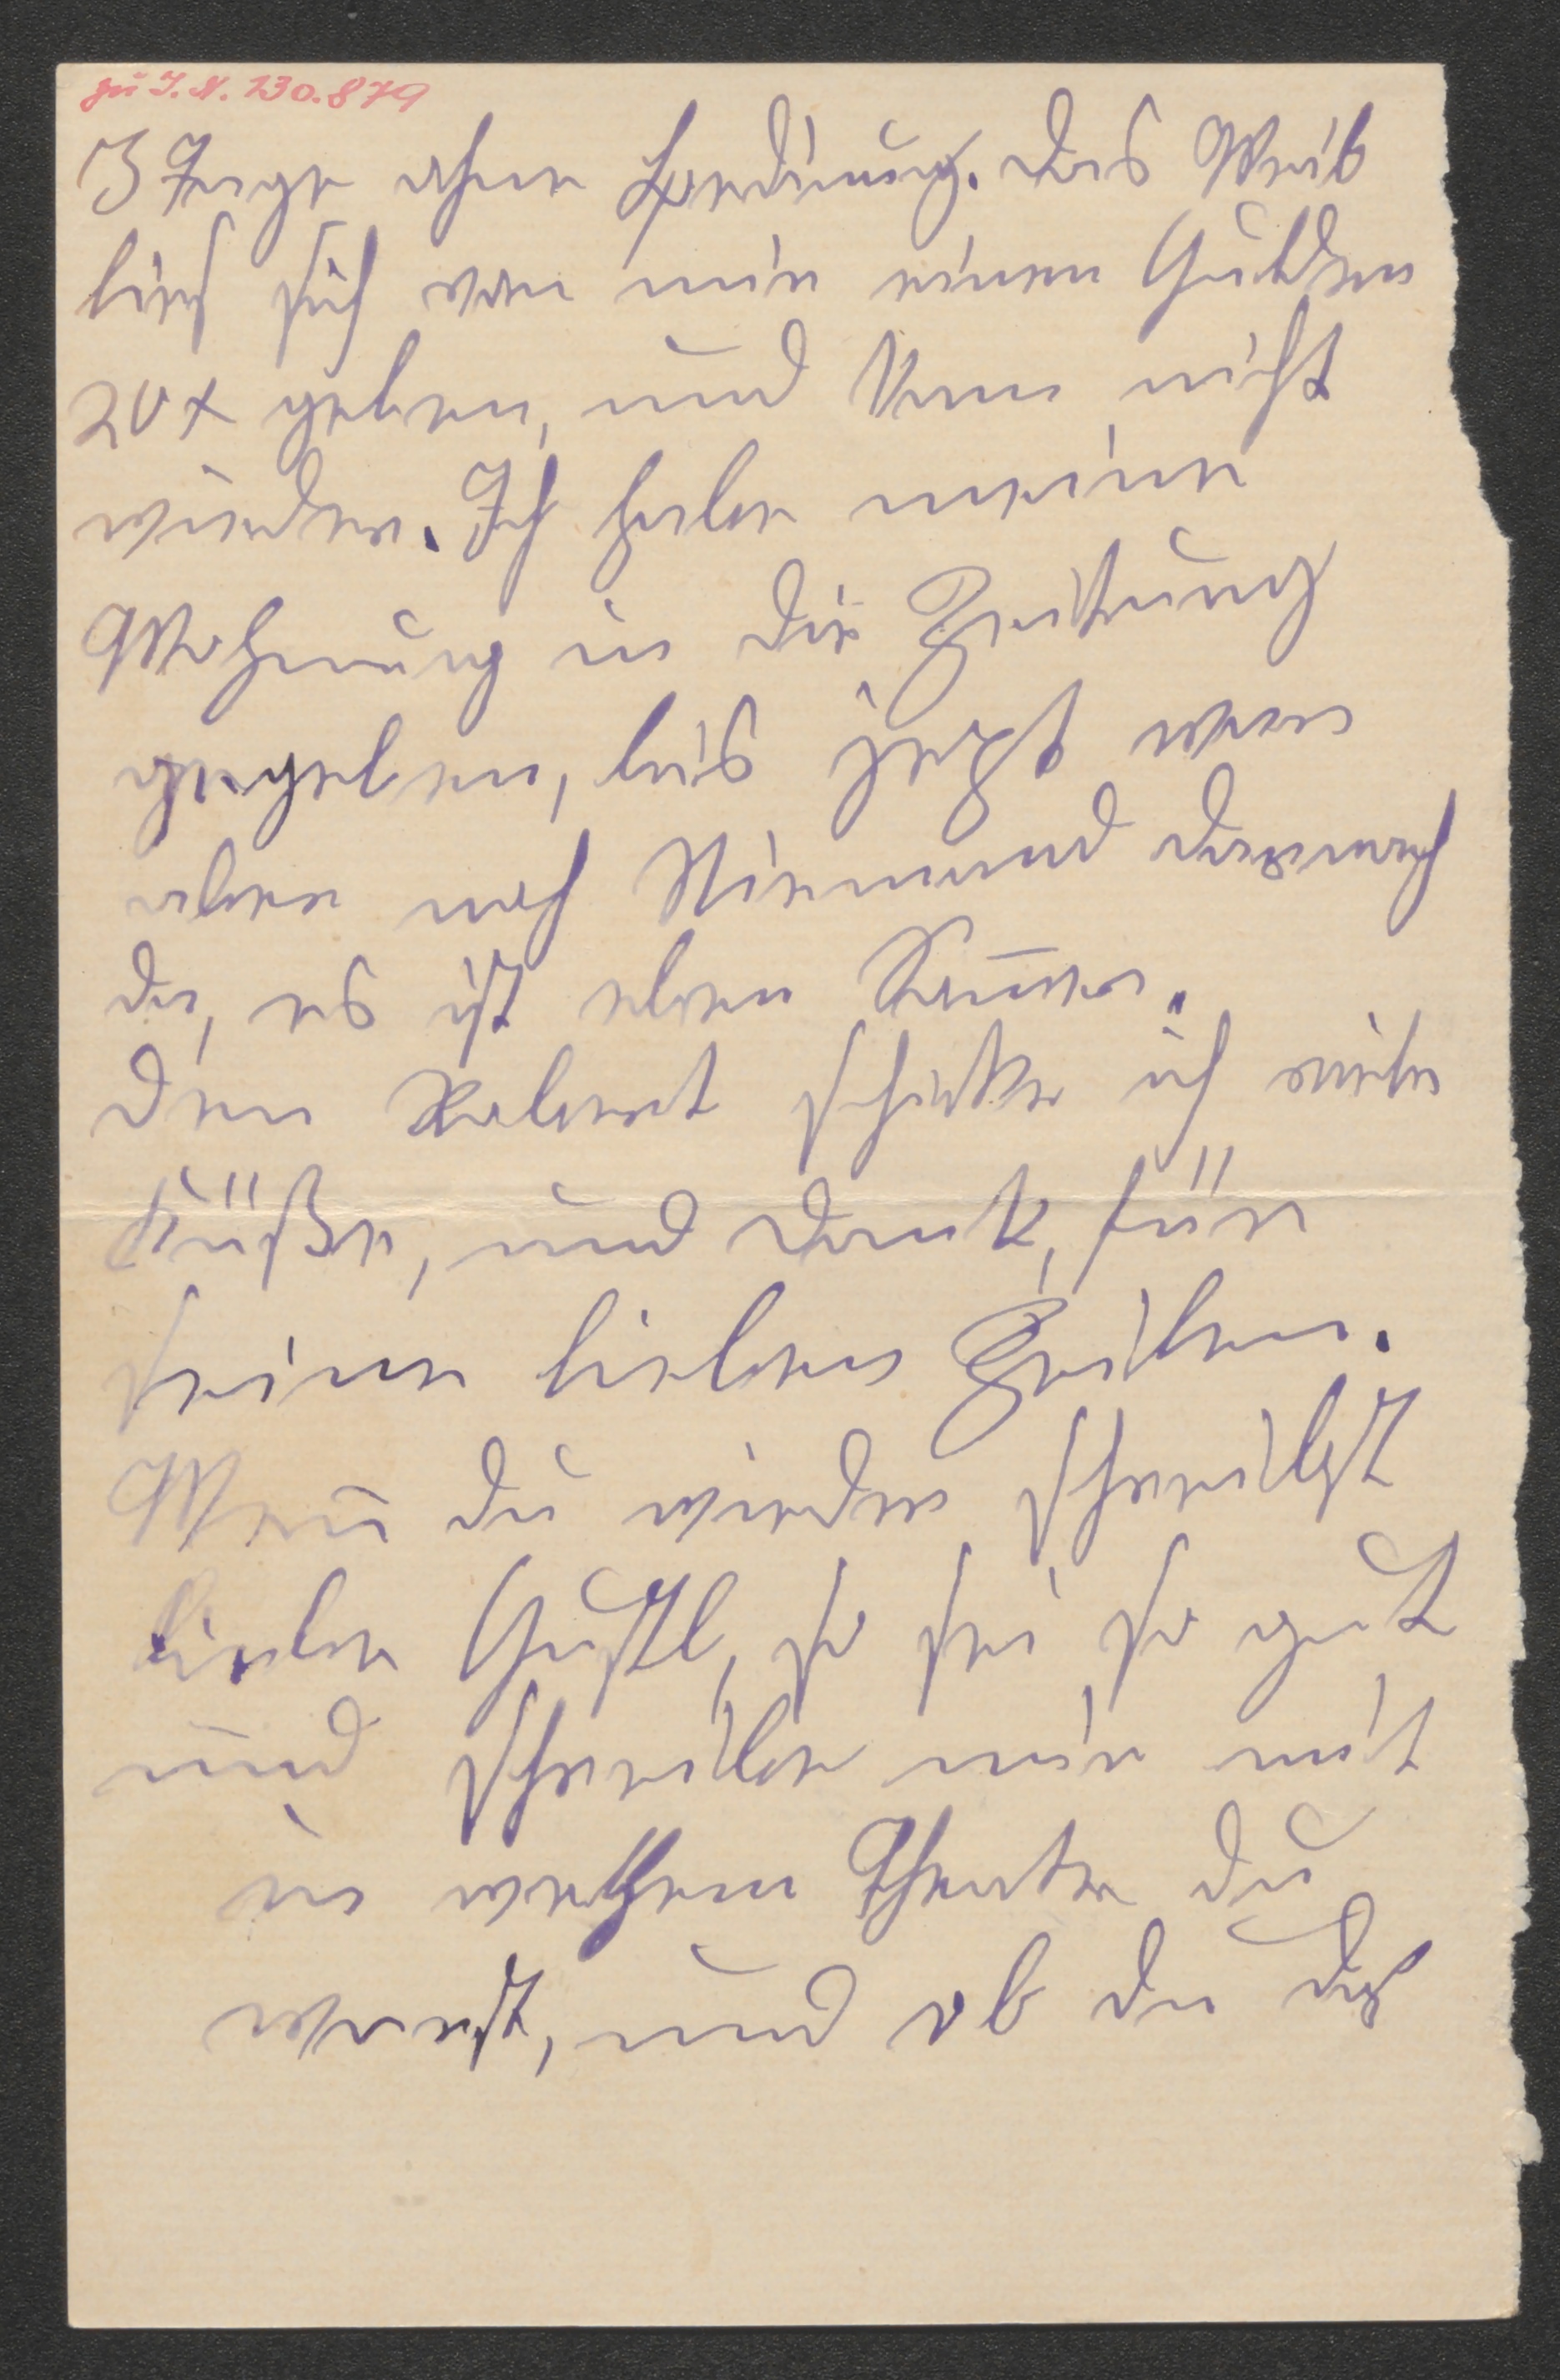 zu I.N. 130.879
3 Tage ohne Bedinung. Das Weib
ließ sich von mir einen Gulden
20 x geben, und kam nicht
wieder. Ich habe meine
Wohnung in die Zeitung
gegeben, bis jezt war
aber noch Niemand darnach
da, es ist eben Som̄er.
Den Robert schicke ich viele
Küße, und Dank, für
seine lieben Zeilen.
Wen̄ du wieder schreibst
liebe Gustl, so sei so gut
und schreibe mir mit
in welchem Theater du
warst, und ob du das